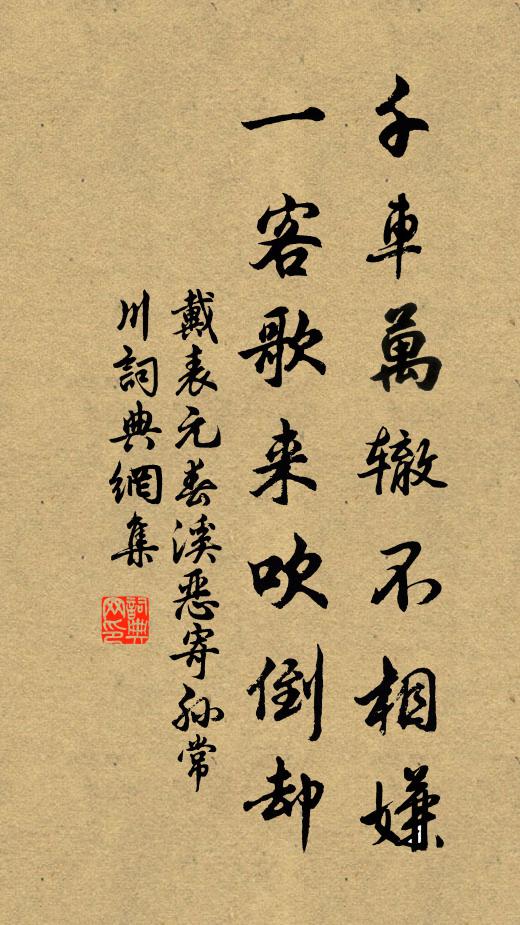 千車萬辙不相嫌
一客歌来吹倒却
戴表元春溪恶寄孙常
川詞典網集
詞典网印